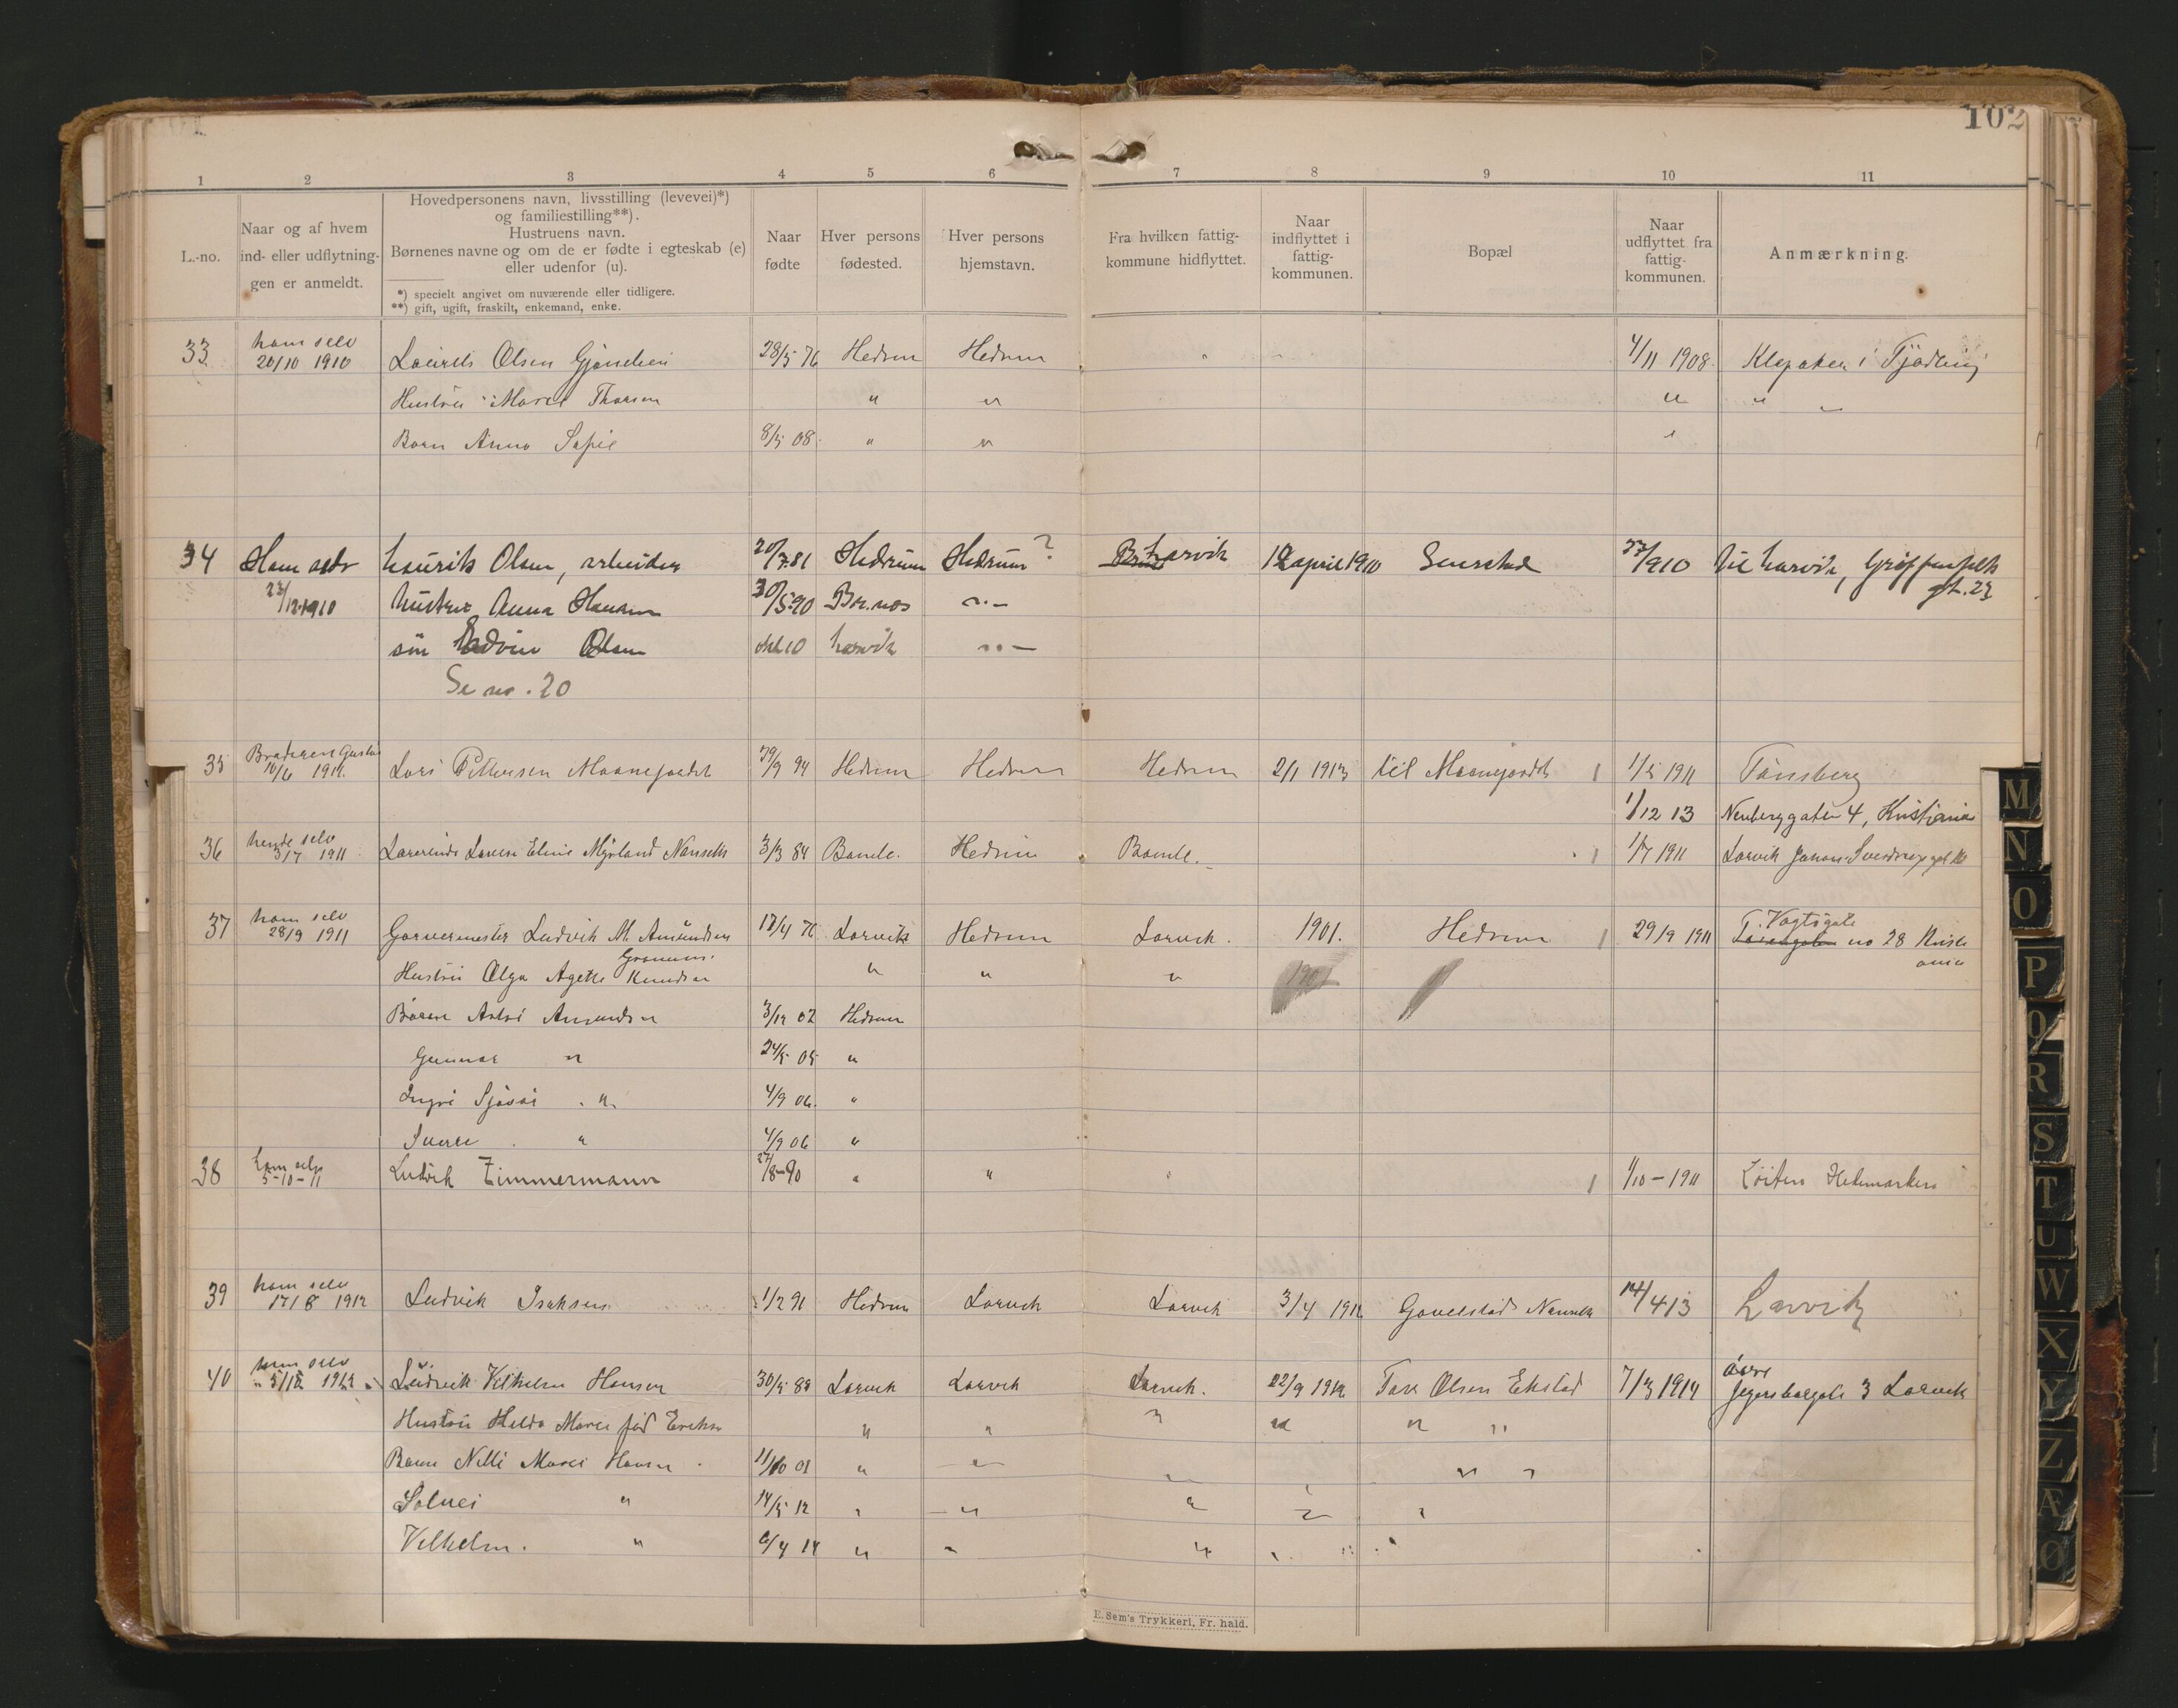 102
1 2 3 4 5 6 7 8 9 10 11
L.-no.
Naar og af hvem
ind- eller udflytnin-
gen er anmeldt.
Hovedpersonens navn, livsstilling (levevei)*)
og familiestilling**).
Hustruens navn.
Børnenes navne og om de er fødte i egteskab (e)
eller udenfor (u).
*) specielt angivet om nuværende eller tidligere.
**) gift, ugift, fraskilt, enkemand, enke.
Naar
fødte
Hver persons
fødested.
Hver persons
hjemstavn.
Fra hvilken fattig-
kommune hidflyttet.
Naar
indflyttet i
fattig-
kommunen.
Bopæl
Naar
udflyttet fra
fattig-
kommunen.
Anmærkning.
33 ham selv 20/10 1910 Laurits Olsen 28/5 76 Hedrum Hedrum 4/11 1908. Klepaker i Tjødling
Hustru Marie Thorsen " " " " "
Barn Anna Sofie 8/5 08. " " "
34 Ham selv Laurits Olsen, arbeider 20/7.81 Hedrum Hedrum ? Larvik 12 april 1910 27/910 til Larvik, Griffenfelts
gt. 23
27/12.1910 hustru Anna Hansen 30/5.90 —"—
søn Edvin Olsen okt 10 Larvik —"—
Se no. 20
35 Broderen Gustav 16/6 1911. Lars Pettersen Maanejordet 29/9 94 Hedrum Hedrum Hedrum 2/1 1913 til Maanejordet 1/5 1911 Tønsberg
1/12 13 Neuberggaten 4, Kristiania
36 hende selv 3/7 1911 Lærerinde Lovise Eline Myrland Nanset 3/3 84 Bamle. Hedrum Bamle. 1/7 1911 Larvik Johan Sverdrups gt 10
37 ham selv 28/9 1911 Garvermester Ludvik M. Amundsen 18/4 76 Larvik Hedrum Larvik. 1901. Hedrum 29/9 1911 T. Vogtsgate no 28 Kristi
ania
Hustru Olga Agette Knudsen " " " 1901
Børn Astri Amundsen 3/12 02 Hedrum
Gunnar " 24/5 05 "
Ingri Sjøvei " 4/9 06. "
Sverre " 4/9 06 "
38 ham selv 5-10-11 Ludvik Zimmermann 27/8-90 " " " 1/10-1911 Løiten Hedemarken
39 ham selv 17/8 1912 Ludvik Isaksen 1/2 91 Hedrum Larvik Larvik 3/4 1912 14/4 13 Larvik
40 ham selv 5/12 1912 Ludvik Vilhelm Hansen 30/5 88 Larvik Larvik Larvik. 22/9 1912 Tore Olsen Ekstad 7/3 1914 øvre
Jegersborggate 3 Larvik
Hustru Hilda Marie fød Eriksen " " " " " "
Barn Nilli Marie Hansen 11/10 01 " " " " "
Solvei " 14/5 12 " " " " "
Vilhelm. " 6/4 14 " " " "
E. Sem's Trykkeri, Fr. hald.
M
N
O
P
Q
R
S
T
U
W
X
Y
Z
Æ
Ø